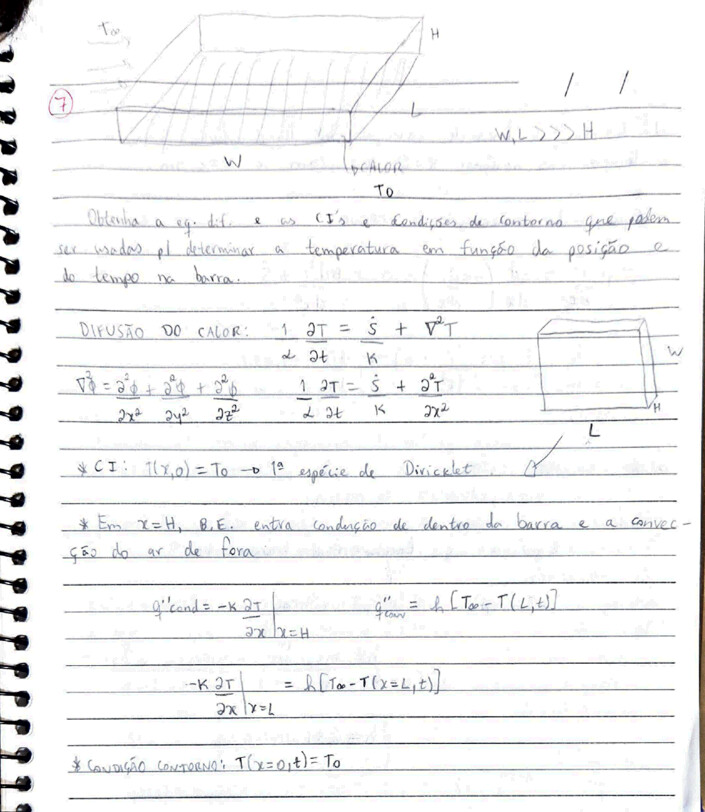 T∞
H
7
L
W,L >>> H
W
CALOR
T0
Obtenha a eq. dif. e as CI's e condições de contorno que podem
ser usadas p/ determinar a temperatura em função da posição e
do tempo na barra.
DIFUSÃO DO CALOR: 1/α ∂T/∂t = Ṡ/K + ∇²T
W
∇²ϕ = ∂²ϕ/∂x² + ∂²ϕ/∂y² + ∂²ϕ/∂z² 1/α ∂T/∂t = Ṡ/K + ∂²T/∂x²
H
L
* CI: T(x,0) = T0 → 1ª espécie de Diricklet
* Em x=H, B.E. entra condução de dentro da barra e a convec-
ção do ar de fora
q''cond = -K ∂T/∂x |x=H q''conv = h[T∞ - T(L,t)]
-K ∂T/∂x |x=L = h[T∞ - T(x=L,t)]
* CONDIÇÃO CONTORNO: T(x=0,t) = T0